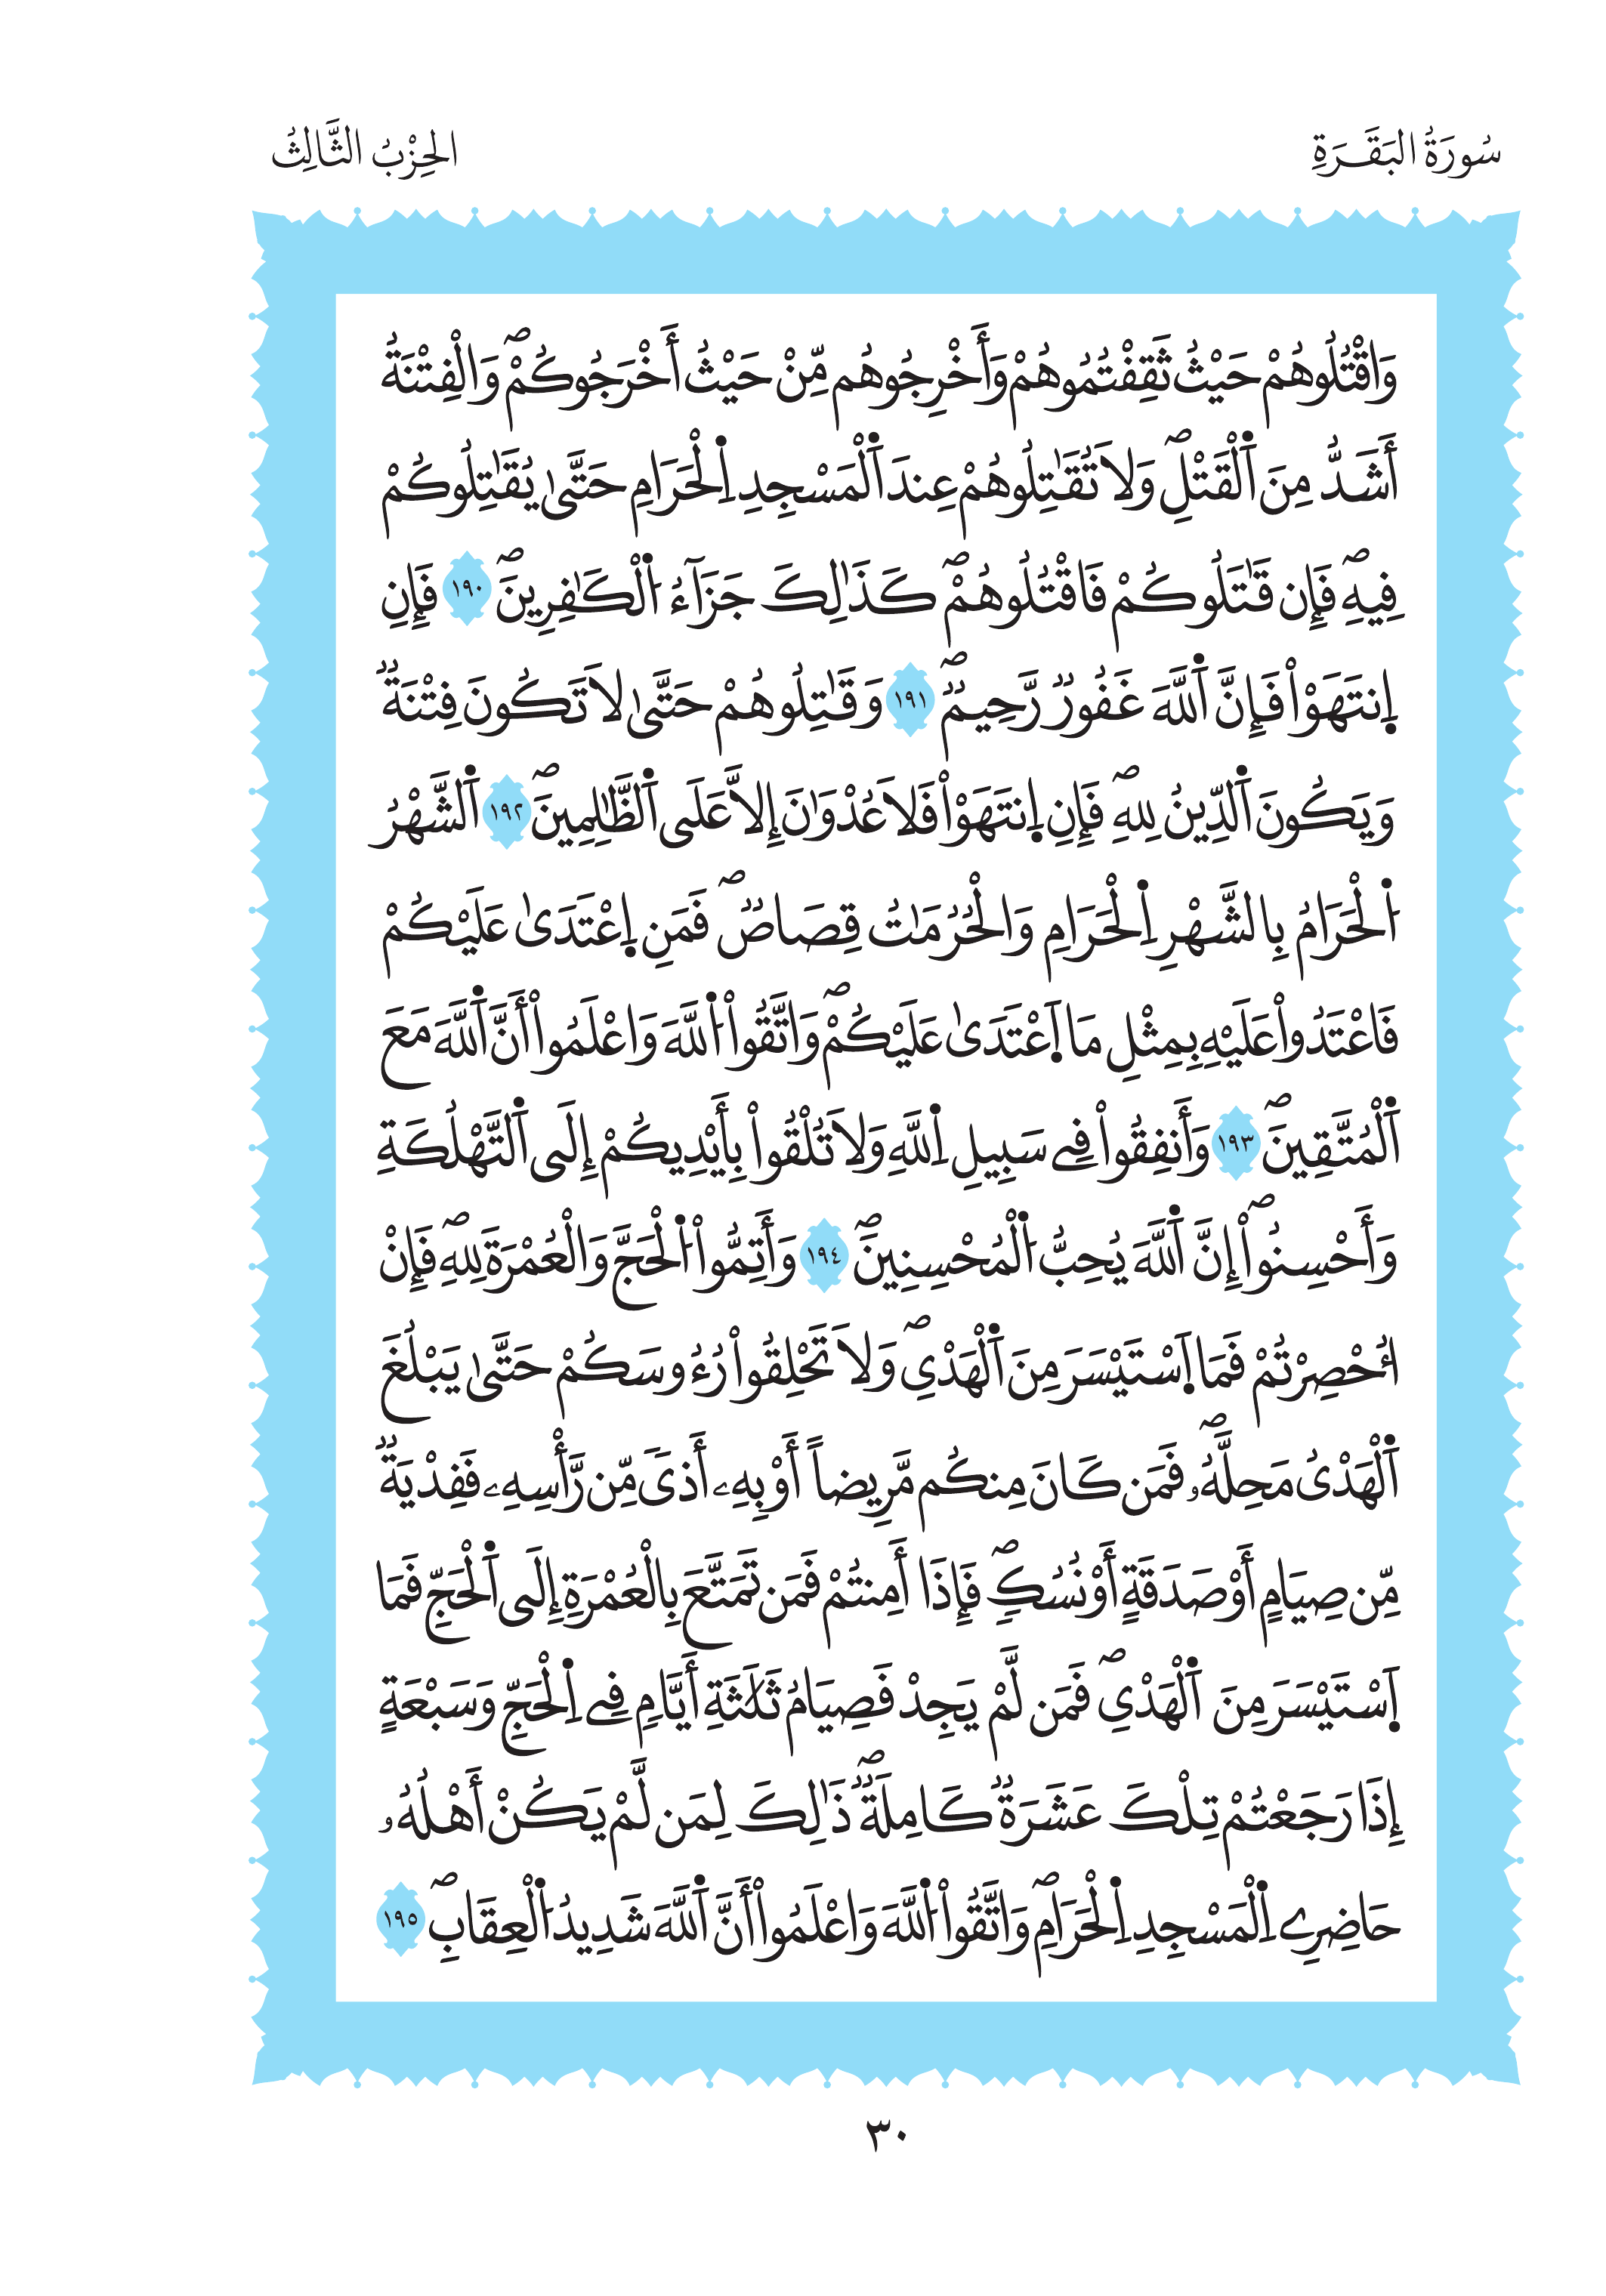 سُورَةُ البَقَرَةِ
الحِزْبُ الثَّالِثُ
وَاقْتُلُوهُمْ حَيْثُ ثَقِفْتُمُوهُمْ وَأَخْرِجُوهُم مِّنْ حَيْثُ أَخْرَجُوكُمْۖ وَالْفِتْنَةُ
أَشَدُّ مِنَ اَ۬لْقَتْلِۖ وَلَا تُقَٰتِلُوهُمْ عِندَ اَ۬لْمَسْجِدِ اِ۬لْحَرَامِ حَتَّىٰ يُقَٰتِلُوكُمْ
فِيهِۖ فَإِن قَٰتَلُوكُمْ فَاقْتُلُوهُمْۖ كَذَٰلِكَ جَزَآءُ اُ۬لْكَٰفِرِينَۖ ١٩٠ فَإِنِ
اِ۪نتَهَوْاْ فَإِنَّ اَ۬للَّهَ غَفُورٌ رَّحِيمٌۖ ١٩١ وَقَٰتِلُوهُمْ حَتَّىٰ لَا تَكُونَ فِتْنَةٌ
وَيَكُونَ اَ۬لدِّينُ لِلهِۖ فَإِنِ اِ۪نتَهَوْاْ فَلَا عُدْوَٰنَ إِلَّا عَلَى اَ۬لظَّٰلِمِينَۖ ١٩٢ اَ۬لشَّهْرُ
اُ۬لْحَرَامُ بِالشَّهْرِ اِ۬لْحَرَامِ وَالْحُرُمَٰتُ قِصَاصٌۖ فَمَنِ اِ۪عْتَدَىٰ عَلَيْكُمْ
فَاعْتَدُواْ عَلَيْهِ بِمِثْلِ مَا اَ۪عْتَدَىٰ عَلَيْكُمْۖ وَاتَّقُواْ اُ۬للَّهَ وَاعْلَمُواْ أَنَّ اَ۬للَّهَ مَعَ
اَ۬لْمُتَّقِينَۖ ١٩٣ وَأَنفِقُواْ فِے سَبِيلِ اِ۬للَّهِ وَلَا تُلْقُواْ بِأَيْدِيكُمْ إِلَى اَ۬لتَّهْلُكَةِ
وَأَحْسِنُواْۖ إِنَّ اَ۬للَّهَ يُحِبُّ اُ۬لْمُحْسِنِينَۖ ١٩٤ وَأَتِمُّواْ اُ۬لْحَجَّ وَالْعُمْرَةَ لِلهِۖ فَإِنْ
اُ۟حْصِرْتُمْ فَمَا اَ۪سْتَيْسَرَ مِنَ اَ۬لْهَدْيِۖ وَلَا تَحْلِقُواْ رُءُوسَكُمْ حَتَّىٰ يَبْلُغَ
اَ۬لْهَدْيُ مَحِلَّهُۥۖ فَمَن كَانَ مِنكُم مَّرِيضاً أَوْ بِهِۦ أَذىَ مِّن رَّأْسِهِۦ فَفِدْيَةٌ
مِّن صِيَامٍ أَوْ صَدَقَةٍ أَوْ نُسُكٍۖ فَإِذَا أَمِنتُمْ فَمَن تَمَتَّعَ بِالْعُمْرَةِ إِلَى اَ۬لْحَجِّ فَمَا
اَ۪سْتَيْسَرَ مِنَ اَ۬لْهَدْيِۖ فَمَن لَّمْ يَجِدْ فَصِيَامُ ثَلَٰثَةِ أَيَّامٍ فِے اِ۬لْحَجِّ وَسَبْعَةٍ
إِذَا رَجَعْتُمْ تِلْكَ عَشَرَةٌ كَامِلَةٌۖ ذَٰلِكَ لِمَن لَّمْ يَكُنْ أَهْلُهُۥ
حَاضِرِے اِ۬لْمَسْجِدِ اِ۬لْحَرَامِۖ وَاتَّقُواْ اُ۬للَّهَ وَاعْلَمُواْ أَنَّ اَ۬للَّهَ شَدِيدُ اُ۬لْعِقَابِۖ ١٩٥
٣٠